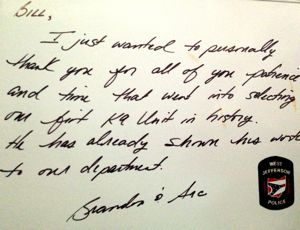 BILL,
I just wanted to personally
thank you for all of you patience
and time that went into selecting
our first K9 Unit in history.
He has already shown his worth
to our department.
Brandon & Arc
WEST
JEFFERSON
POLICE